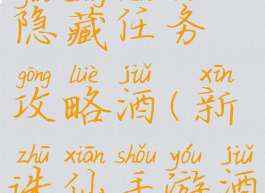 隐藏任务
gōng lüè jiǔ xīn
攻略酒(新
zhū xiān shǒu yóu jiǔ
诛仙手游酒